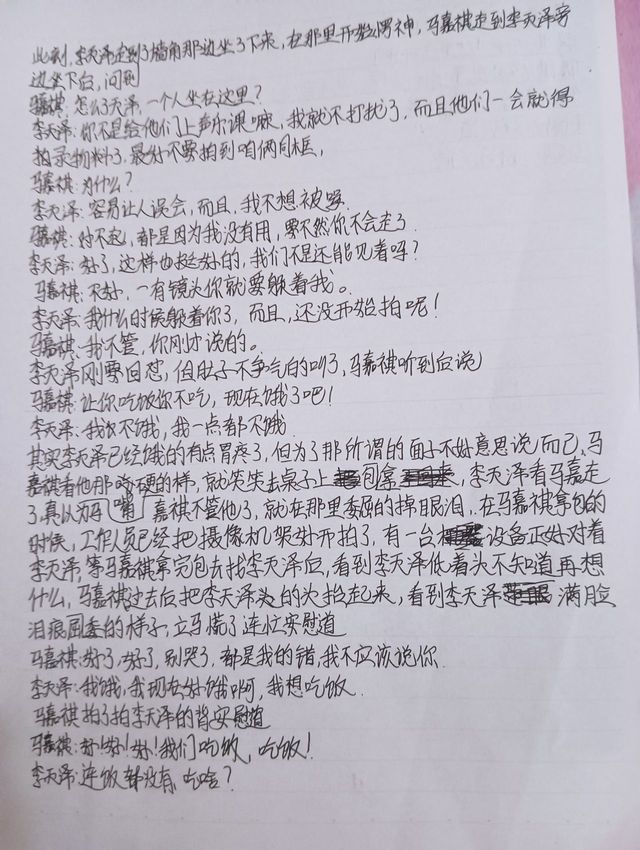 此刻,李天泽走到了墙角那边坐了下来,在那里开始愣神,马嘉祺走到李天泽旁
边坐下后,问到
马嘉祺:怎么了天泽,一个人坐在这里?
李天泽:你不是给他们上声乐课嘛,我就不打扰了,而且他们一会就得
拍录物料了,最好不要拍到咱俩同框,
马嘉祺:为什么?
李天泽:容易让人误会,而且,我不想被骂.
马嘉祺:对不起,都是因为我没有用,要不然你不会走了.
李天泽:好了,这样也挺好的,我们不是还能见着吗?
马嘉祺:不好,一有镜头你就要躲着我。
李天泽:我什么时候躲着你了,而且,还没开始拍呢!
马嘉祺:我不管,你刚才说的。
李天泽刚要回怼,但肚子不争气的叫了,马嘉祺听到后说
马嘉祺:让你吃饭你不吃,现在饿了吧!
李天泽:我不饿,我一点都不饿
其实李天泽已经饿的有点胃疼了,但为了那所谓的面子不好意思说而已,马
嘉祺看他那嘴硬的样,就笑笑去桌子上包拿,李天泽看马嘉走
了,真以为马嘉祺不管他了,就在那里委屈的掉眼泪,在马嘉祺拿包的
时候,工作人员已经把摄像机架好开拍了,有一台设备正好对着
李天泽,等马嘉祺拿完包去找李天泽后,看到李天泽低着头不知道再想
什么,马嘉祺过去后把李天泽的头抬起来,看到李天泽满脸
泪痕屈委的样子,立马慌了连忙安慰道
马嘉祺:好了,好了,别哭了,都是我的错,我不应该说你.
李天泽:我饿,我现在好饿啊,我想吃饭.
马嘉祺拍了拍李天泽的背安慰道
马嘉祺:好!好!好!我们吃饭,吃饭!
李天泽:连饭都没有,吃啥?